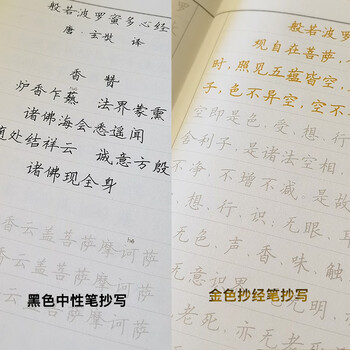 般若波罗蜜多心经
唐·玄奘 译
香 赞
炉香乍爇 法界蒙熏
诸佛海会悉遥闻
随处结祥云 诚意方殷
诸佛现全身
香云盖菩萨摩诃萨
香云盖菩萨摩诃萨
黑色中性笔抄写
般若波罗
观自在菩萨,
时,照见五蕴皆空,
子,色不异空,空不
空即是色。受、想、行、
舍利子,是诸法空相
不净,不增不减。是故
、想、行、识,无眼、耳
无色、声、香、味、触、
无意识界,无无明,亦
老死,亦无老死
金色抄经笔抄写